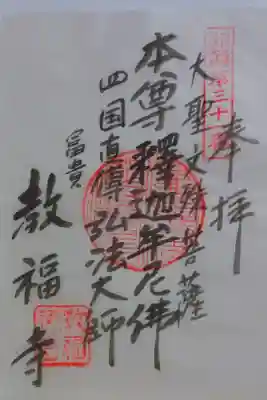 奉拝
大聖文殊菩薩
本尊釋迦牟尼佛
四国直傳弘法大師
富貴
教福寺